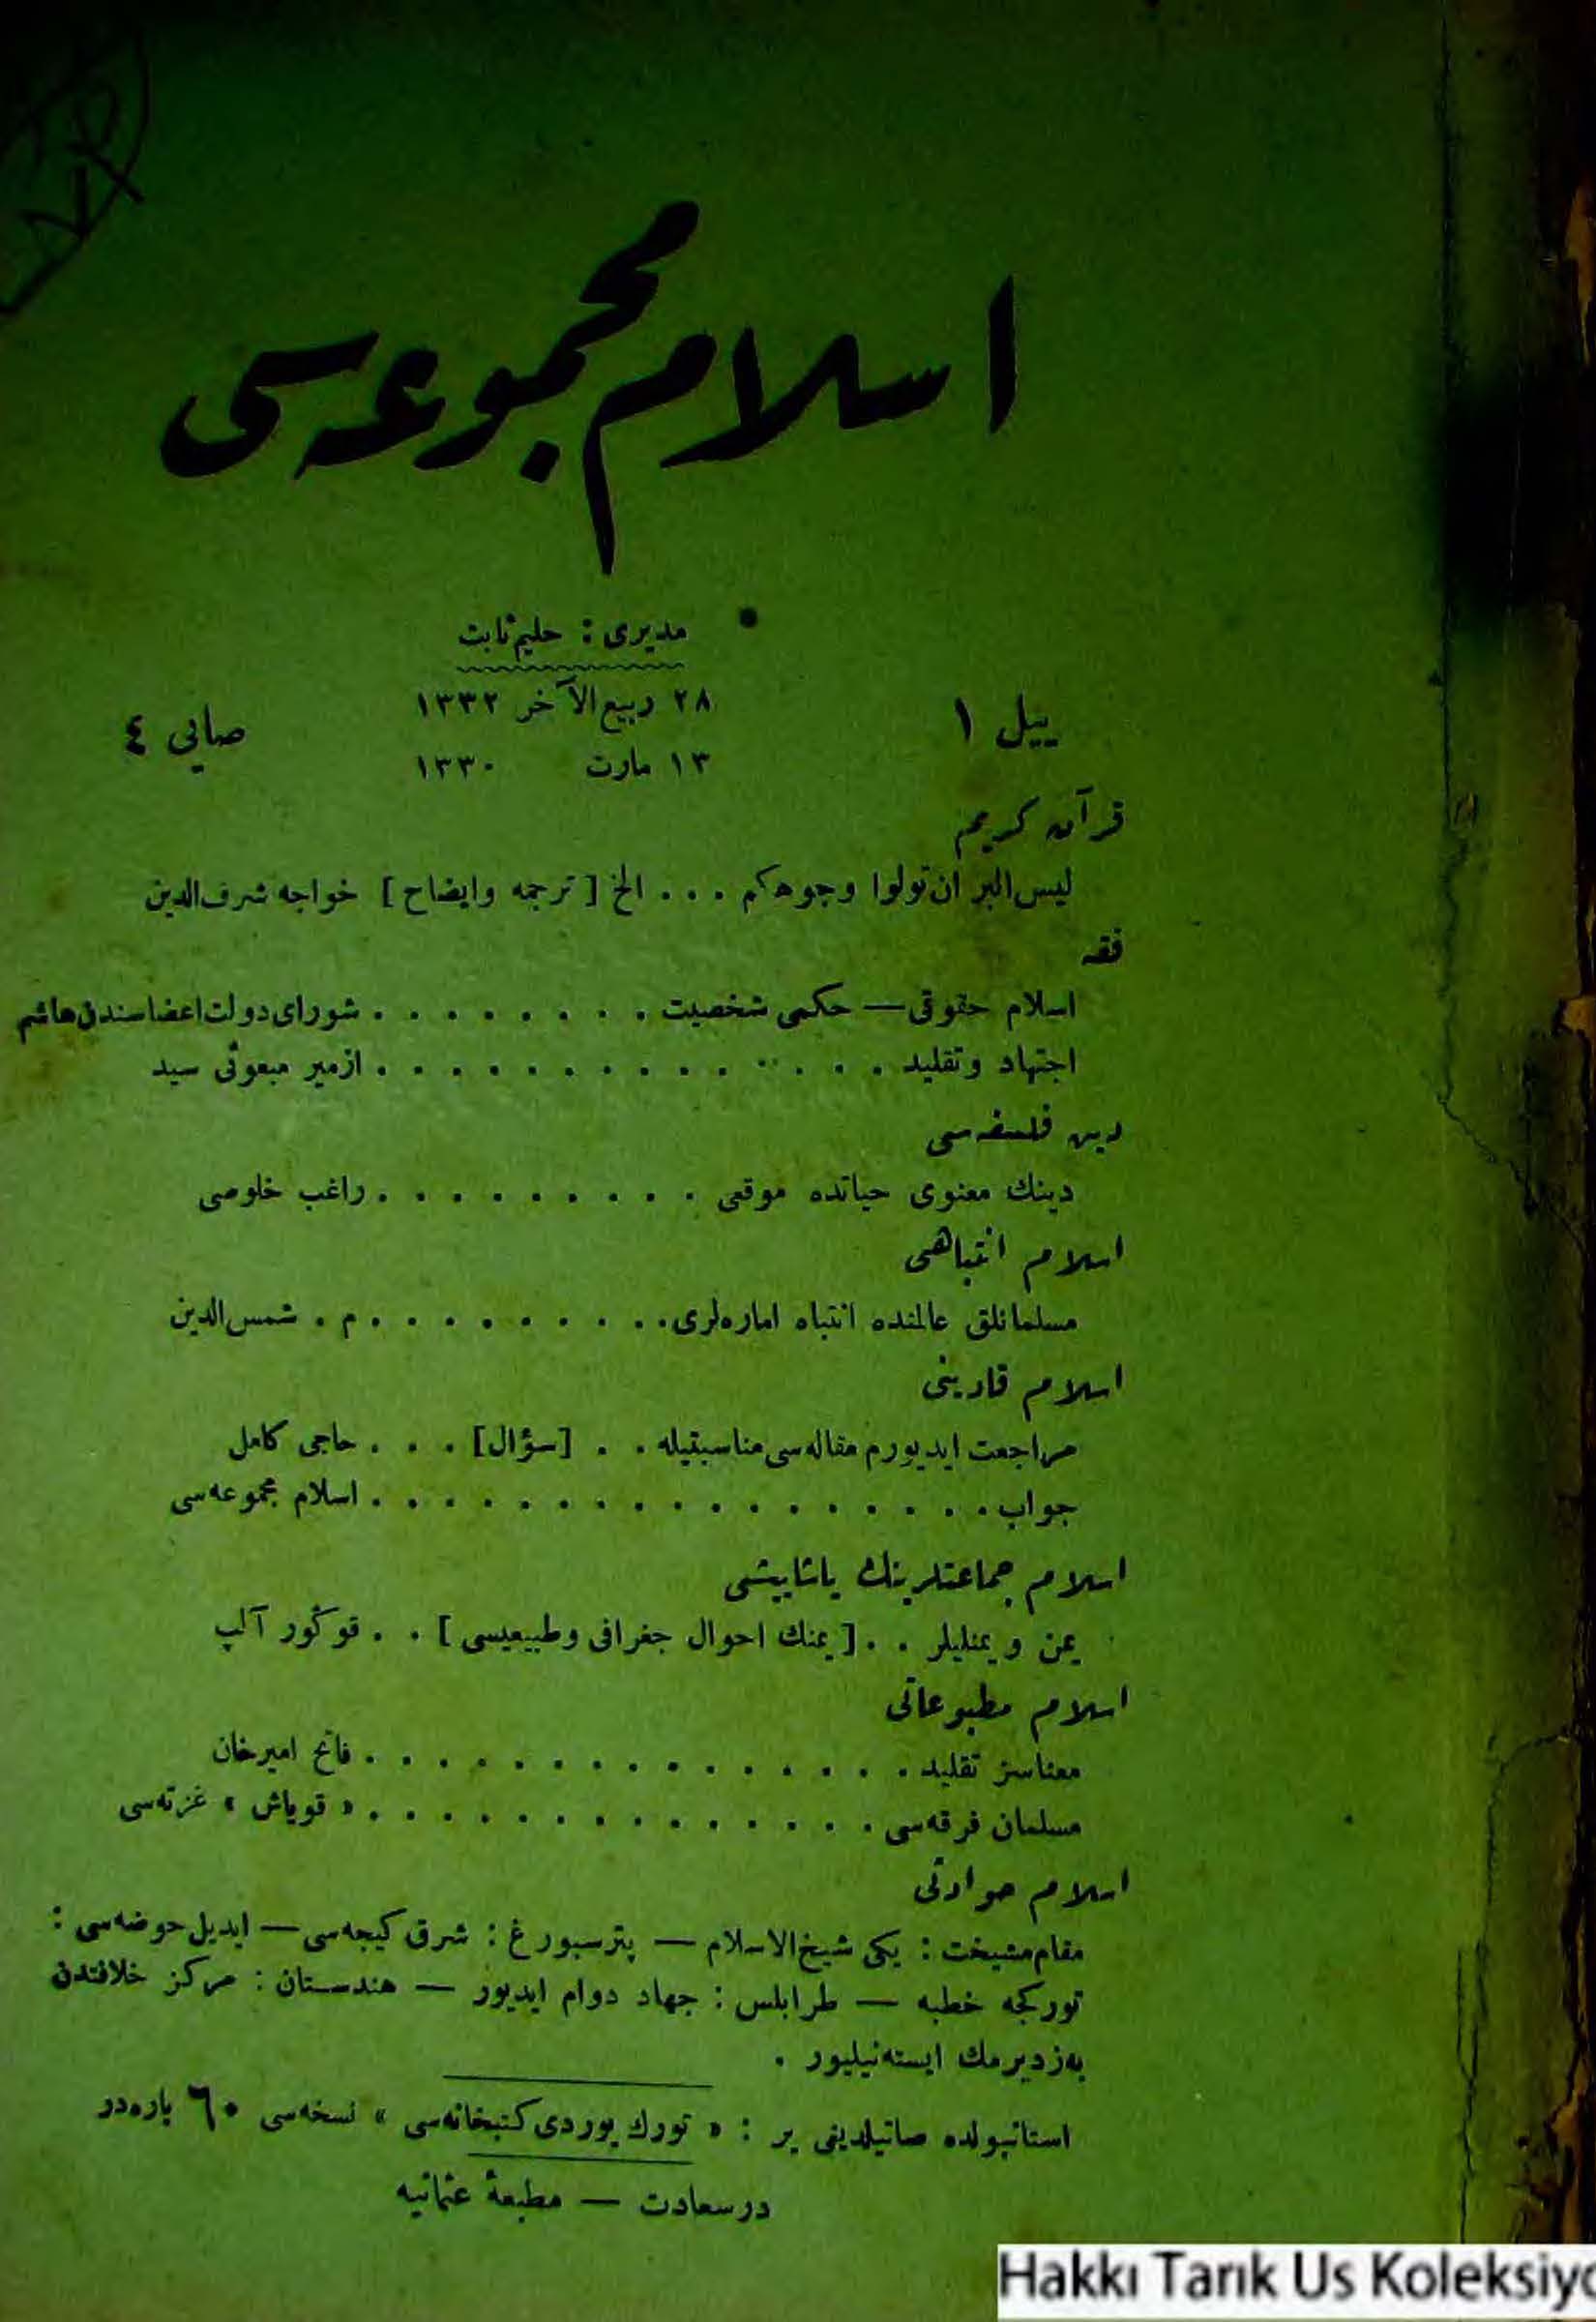 اسلام مجموعه‌سی
مديری : حليم ثابت
ييل ١
٢٨ ربيع‌الآخر ١٣٣٢
١٣ مارت ١٣٣٠
صايی ٤
قرآن كريم
ليس البر ان تولوا وجوهكم . . . الخ [ ترجمه وايضاح ] خواجه شرف‌الدين
فقه
اسلام حقوقی — حكمی شخصيت . . . . . . . . شورای دولت اعضاسندن هاشم
اجتهاد وتقليد . . . . . . . . . . . . . . ازمير مبعوثی سيد
دين فلسفه‌سی
دينك معنوی حياتده موقعی . . . . . . . . . راغب خلوصی
اسلام انتباهی
مسلمانلق عالمنده انتباه اماره‌لری . . . . . . . . . م . شمس‌الدين
اسلام قادينی
مراجعت ايديورم مقاله‌سی مناسبتيله . . [سؤال] . . . حاجی كامل
جواب . . . . . . . . . . . . . . . . . اسلام مجموعه‌سی
اسلام جماعتلرينك ياشاييشی
يمن و يمنليلر . . [ يمنك احوال جغرافی وطبيعيسی ] . . قوكور آلپ
اسلام مطبوعاتی
معناسز تقليد . . . . . . . . . . . . . . . فاتح اميرخان
مسلمان فرقه‌سی . . . . . . . . . . . . . . « قوياش » غزته‌سی
اسلام حوادثی
مقام مشيخت : يكی شيخ‌الاسلام — پترسبورغ : شرق كيجه‌سی — ايديل حوضه‌سی :
توركجه خطبه — طرابلس : جهاد دوام ايديور — هندستان : مركز خلافتدن
به‌زديرمك ايسته‌نيليور .
استانبولده صاتيلديغی ير : « تورك يوردی كتبخانه‌سی » نسخه‌سی ٦٠ پاره‌در
درسعادت — مطبعهٔ عثمانيه
Hakkı Tarık Us Koleksiyo